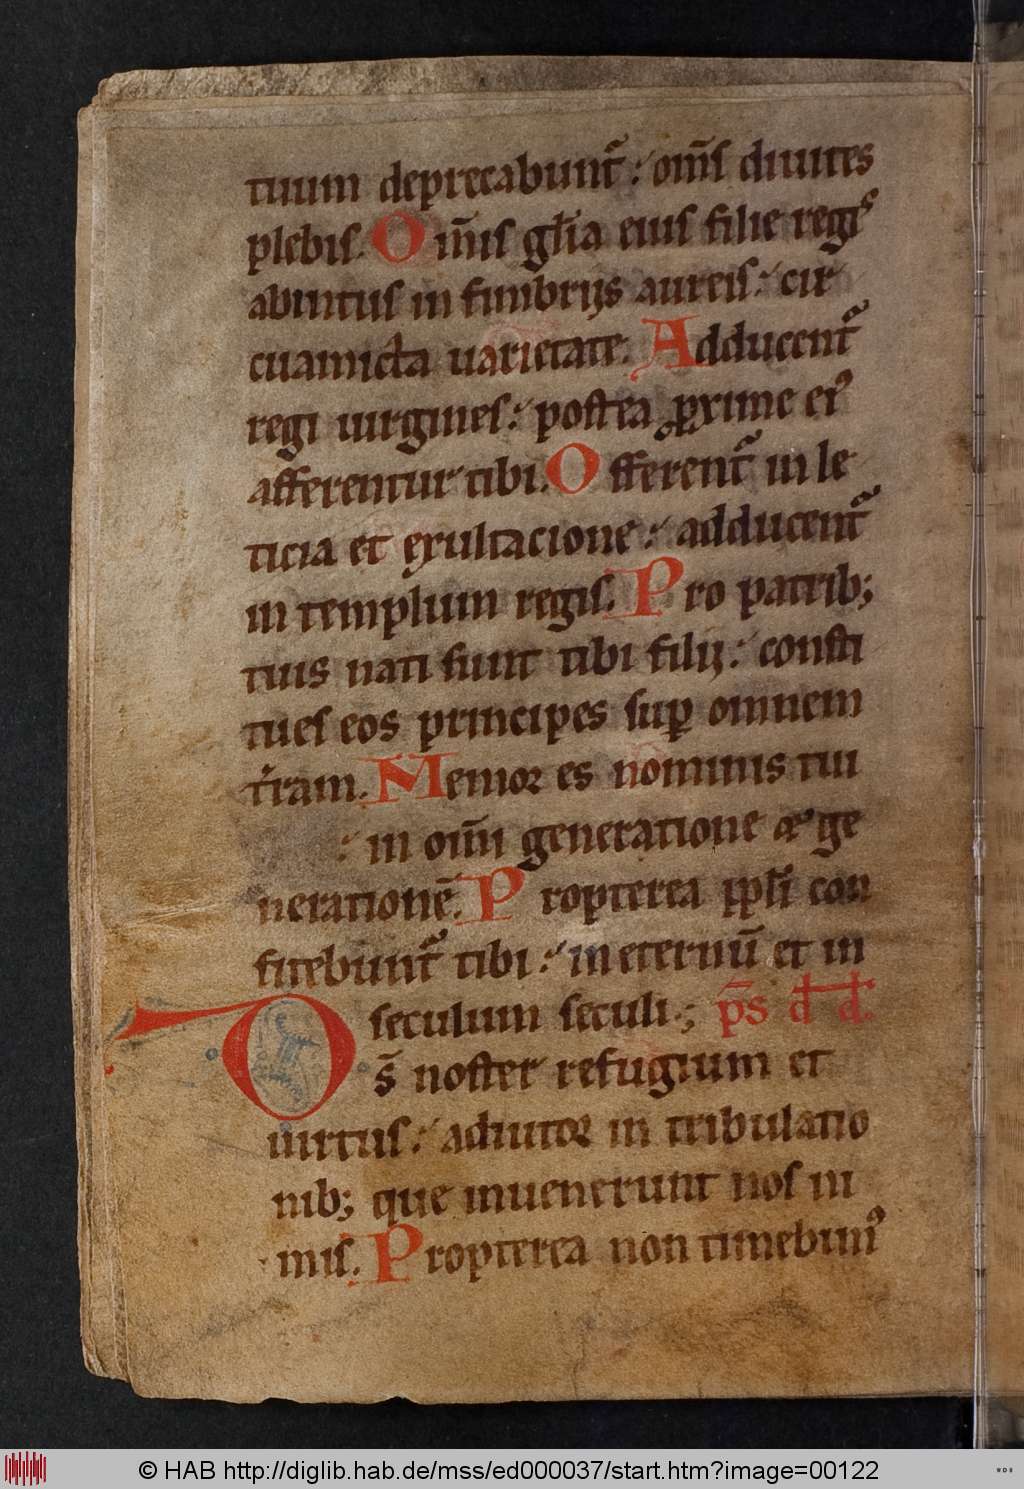 tuum deprecabunt᷑ : om̅s diuites
plebis. Om̅is gl̅ia eius filie regiꝰ
abintus in fimbrijs aureis : cir
cuamicta uarietate. Adducent᷑
regi uirgines : postea ꝓxime eiꝰ
afferentur tibi. Offerent᷑ in le
ticia et exultacione : adducent᷑
in templum regis. Pro patrib;
tuis nati sunt tibi filij : consti
tues eos principes suꝑ omnem
t̉ram. Memor es nominis tui
: in om̅i generatione et ge
neratione̅. Propterea pp̅li con
fitebunt᷑ tibi : in eternu̅ et in
seculum seculi.; p̅s d̅d̅.
Ds̅ noster refugium et
uirtus : adiutor in tribulatio
nib; que inuenerunt nos ni
mis. Propterea non timebimꝰ
© HAB http://diglib.hab.de/mss/ed000037/start.htm?image=00122